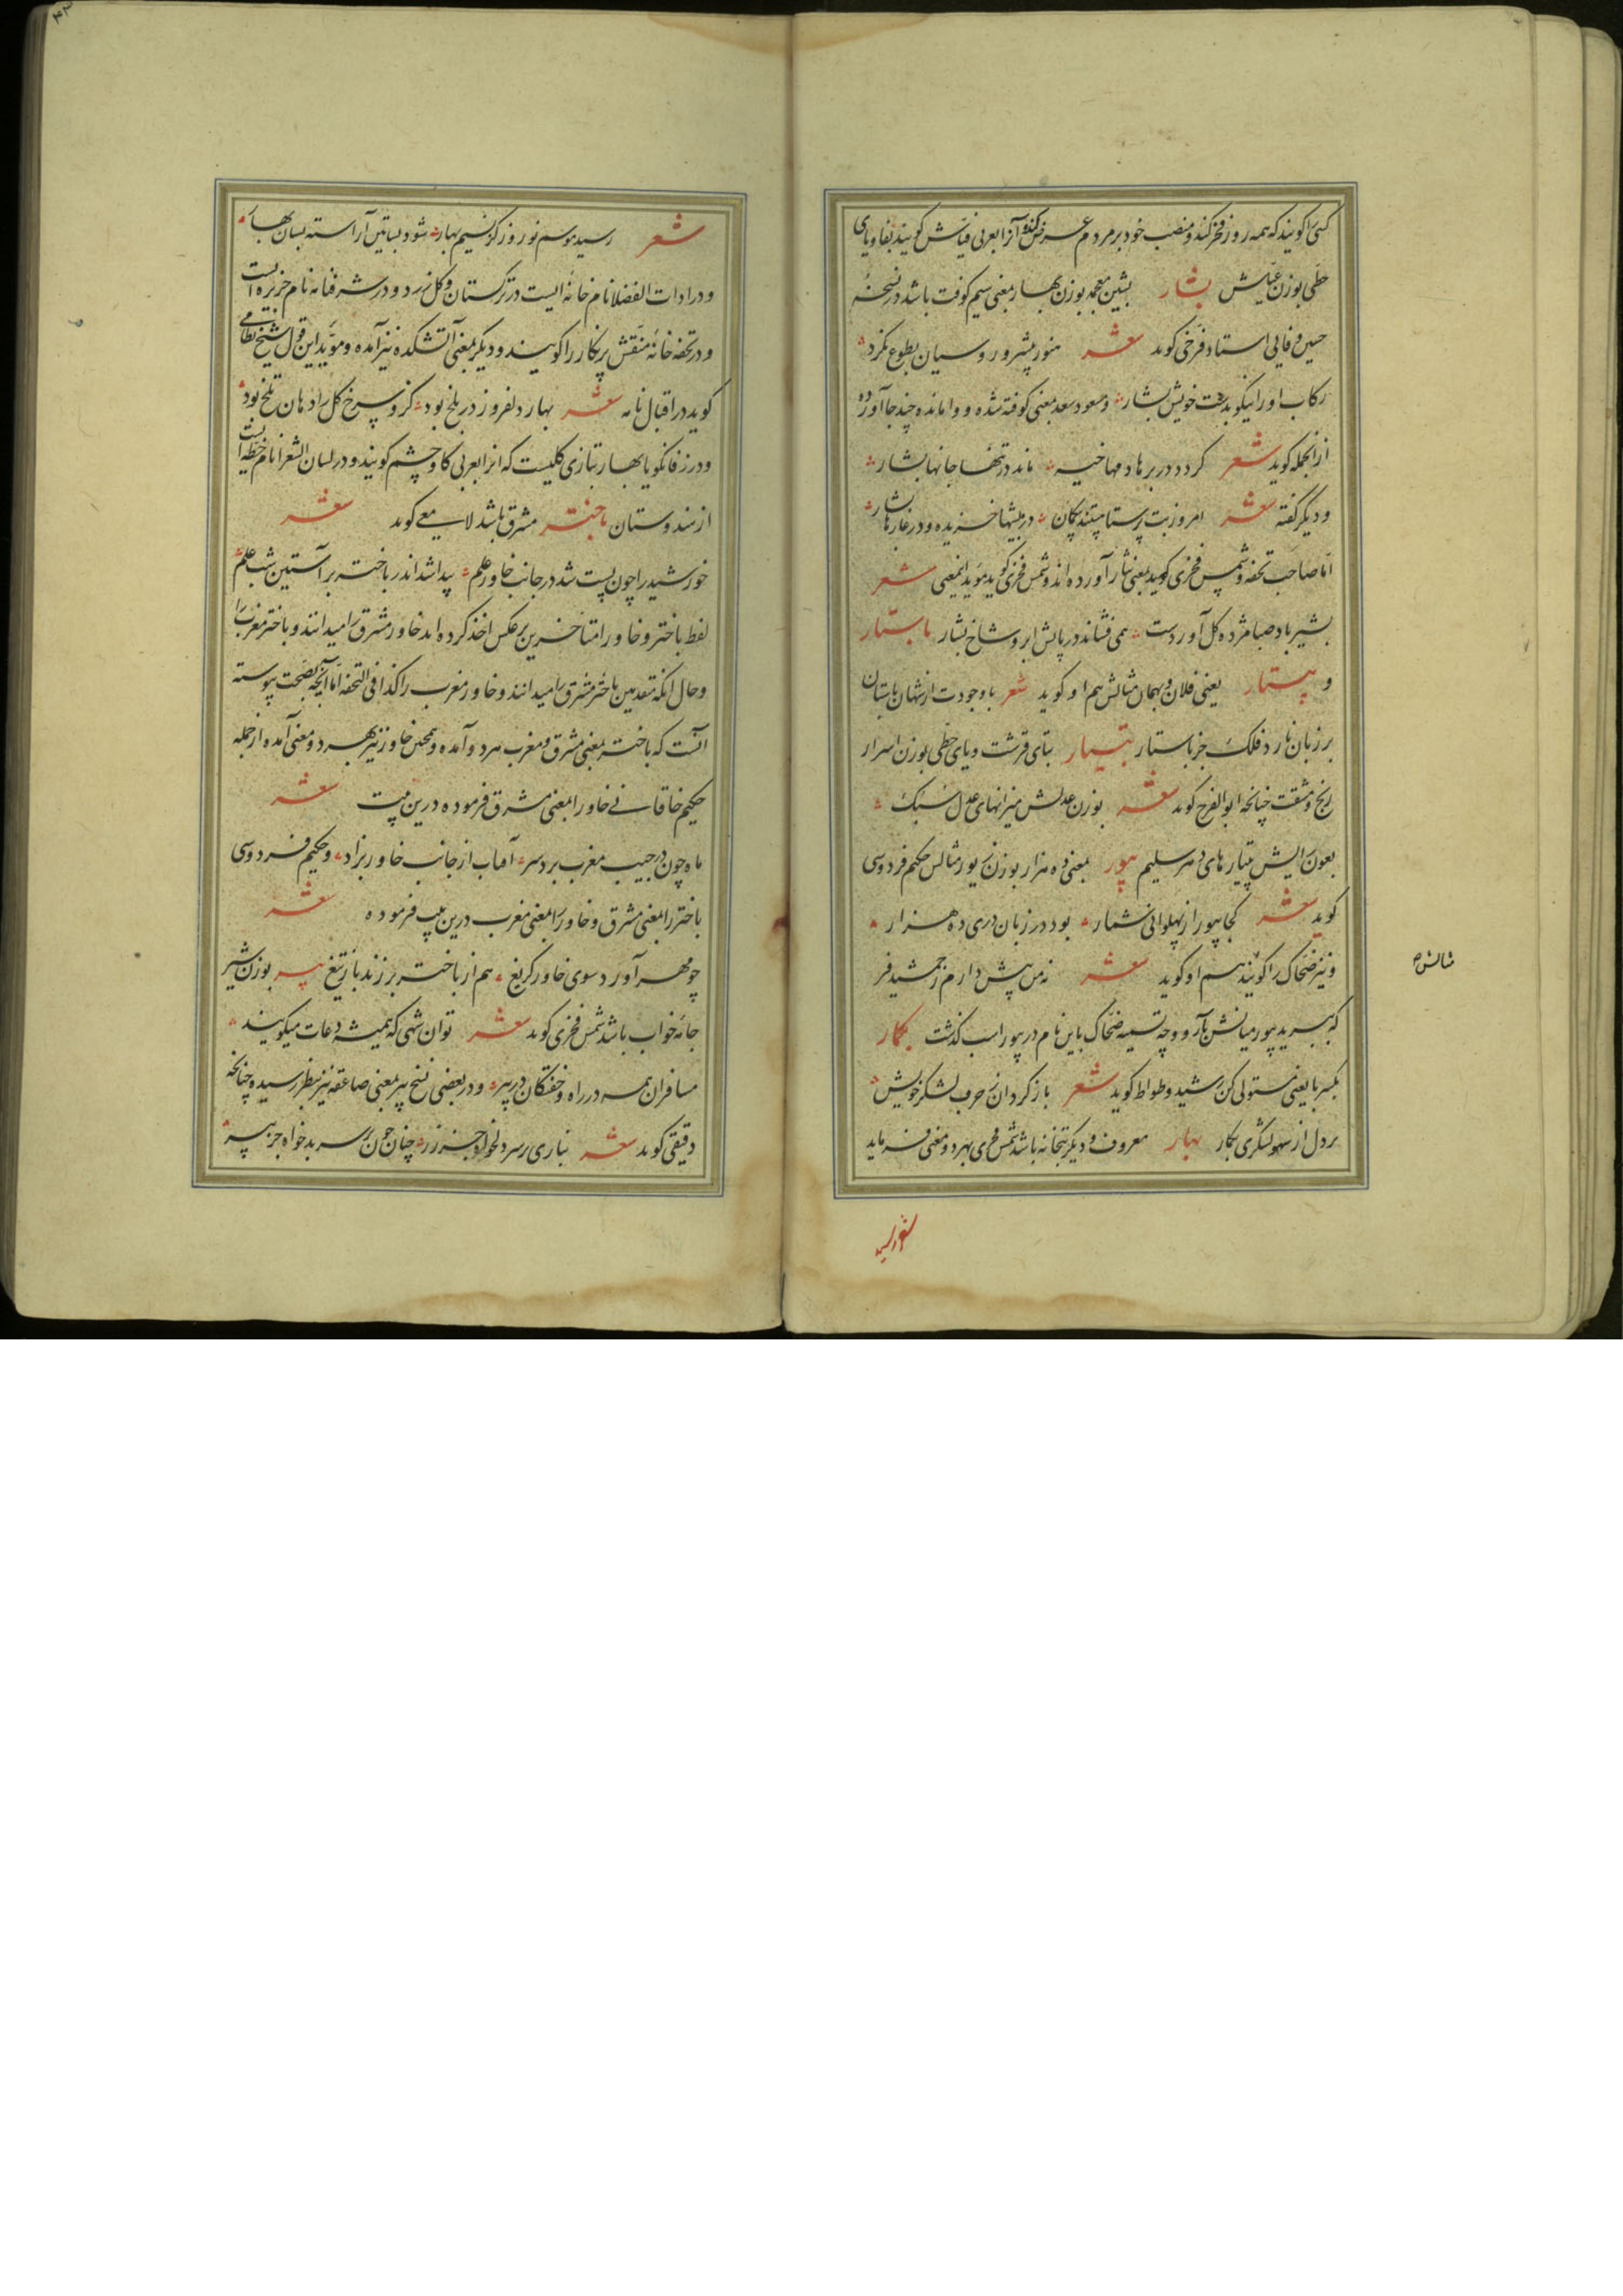 کسی را کویند که همه روز فخر کند و منصب خود بر مردم عرض کند و آنرا بعربی فیاش کویند بفا و یای
حطی بوزن عیاش بشار بشین معجمه بوزن بهار بمعنی سیم کوفت باشد در نسخهٔ
حسین وفایی استاد فرخی کوید شعر هنوز پیشرو روسیان بطوع نکرد
رکاب او را نیکو بدست خویش بشار و مسعود سعد بمعنی کوفته شده و وامانده چند جا آورده
از آنجمله کوید شعر کردد در برها دمها خبه ماند در تنها جانها بشار
و دیکر کفته شعر امروز بت پرستا هستند بیکمان در بیشها خزیده و در غارها بشار
اما صاحب تحفه و شمس فخری کوید بمعنی نثار آورده اند و شمس فخری کوید مؤید اینمعنی شعر
بشیر باد صبا مژده کل آوردست همی فشاند در پایش ابر و شاخ بشار باستار
و بیستار یعنی فلان و بهمان مثالش هم او کوید شعر با وجودت از شهان باستان
بر زبان نارد فلک جز باستار بتیار بتای قرشت و یای حطی بوزن اسرار
رنج و مشقت چنانچه ابوالفرج کوید شعر بوزن عدلش میزانهای عدل سبک
بعون رایش بتیارهای دهر سلیم بیور بمعنی ده هزار بوزن زیور مثالش حکیم فردوسی
کوید شعر کجا بیور از پهلوانی شمار بود در زبان دری ده هزار
و نیز ضحاک را کویند هم او کوید شعر نه من پیش دارم ز جمشید فر
که ببرید بیور میانش بار و وجه تسمیه ضحاک باین نام در بیوراسب کذشت بکمار
بکسر با یعنی مستولی کن رشید وطواط کوید شعر باز کردان ز حرف لشکر خویش
بر دل از سهو لشکری بکمار بهار معروف و دیکر بتخانه باشد شمس فخری بهر دو معنی فرماید
مثالش
شعر رسید
شعر رسید موسم نوروز کز نسیم بهار شود بساتین آراسته بسان بهار
و در ادات الفضلا نام خانه ایست در ترکستان و کل زرد و در شرفنامه نام جزیره ایست
و در تحفه خانهٔ منقش پر نکار را کویند و دیکر بمعنی آتشکده نیز آمده و مؤید این قول شیخ نظامی
کوید در اقبال نامه شعر بهار دلفروز در بلخ بود کزو سرخ کل را دهان تلخ بود
و در زفانکویا بهار بتازی کلیست که انرا بعربی کاوچشم کویند و در لسان الشعرا نام خطه ایست
از هندوستان باختر مشرق باشد لامعی کوید شعر
خورشید را چون پست شد در جانب خاور علم پیدا شد اندر باختر بر آستین شب علم
لفظ باختر و خاور را متاخرین برعکس اخذ کرده اند خاور مشرق را میدانند و باختر مغرب را
و حال انکه متقدمین باختر مشرق را میدانند و خاور مغرب را کذا فی التحفه اما آنچه بصحت پیوسته
آنست که باختر بمعنی مشرق و مغرب هردو آمده و همچنین خاور نیز بهر دو معنی آمده از جمله
حکیم خاقانی خاور را بمعنی مشرق فرموده درین بیت شعر
ماه چون در جیب مغرب برد سر آفتاب از جانب خاور بزاد و حکیم فردوسی
باختر را بمعنی مشرق و خاور را بمعنی مغرب درین بیت فرموده شعر
چو مهر آورد سوی خاور کریغ هم از باختر برزند باز تیغ بیر بوزن شیر
جامهٔ خواب باشد شمس فخری کوید شعر توان شهی که همیشه دعات میکویند
مسافران همه در راه و خفتکان در بیر و در بعضی نسخ بیر بمعنی صاعقه نیز بنظر رسیده چنانچه
دقیقی کوید شعر تباری رسد دلخواه جز زر چنان چون رسد بدخواه جز بیر